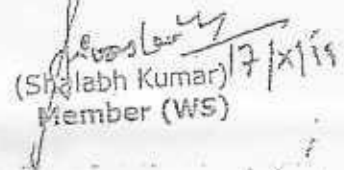 17/x/19
(Shalabh Kumar)
Member (WS)